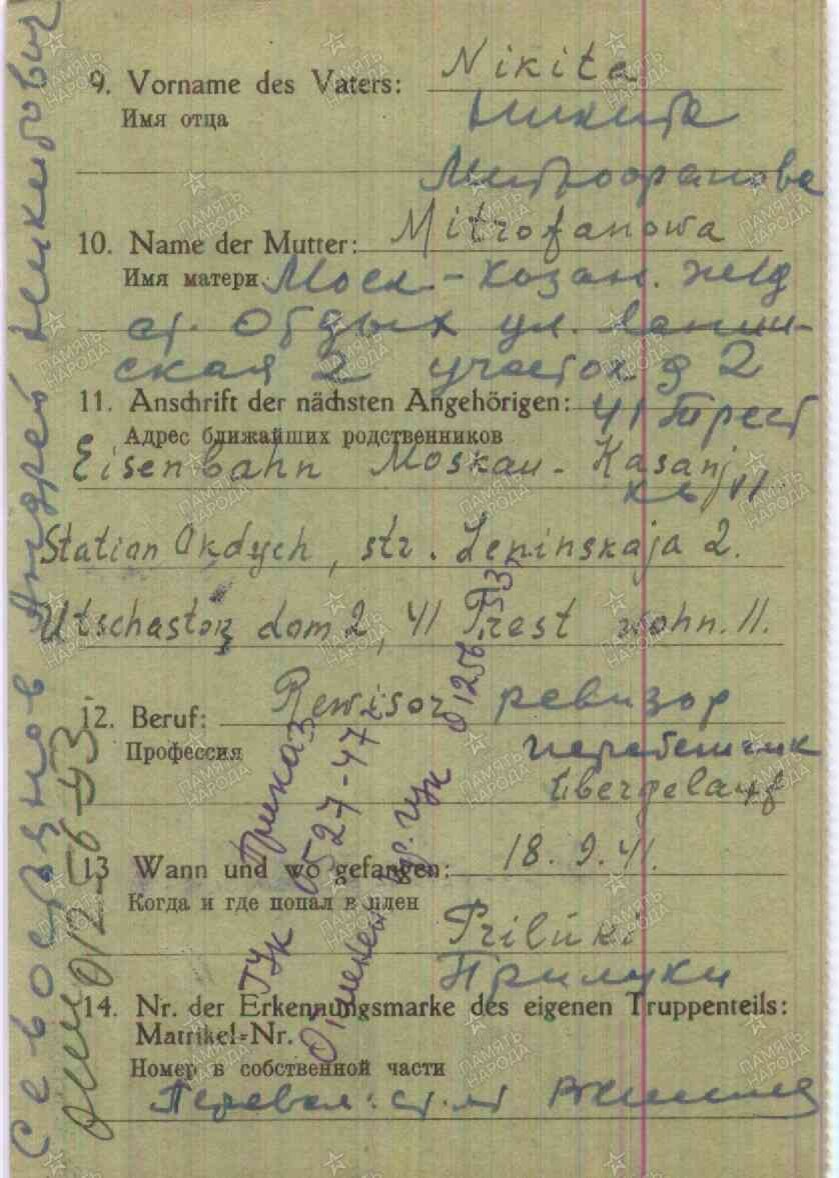 9. Vorname des Vaters: Nikita
Имя отца Никита
Митрофанова
10. Name der Mutter: Mitrofanowa
Имя матери Моск - Козан. жд
ст. Отдых ул. Ленин-
ская 2 участок д 2
11. Anschrift der nächsten Angehörigen: 41 Трест
Адрес ближайших родственников
Eisenbahn Moskau - Kasanj
кв 11
Station Okdych, str. Leninskaja 2.
Utschastok dom 2, 41 Trest wohn. 11.
12. Beruf: Rewisor ревизор
Профессия перебещик
Übergelauf
13 Wann und wo gefangen: 18. 9. 41.
Когда и где попал в плен
Prilúki
Прилуки
14. Nr. der Erkennungsmarke des eigenen Truppenteils:
Matrikel=Nr.
Номер в собственной части
Перевел: ст. лт
Севостьянов Андрей Никитович
012-56-43
Приказ
ГУК 0527-47 г
Отменен пр. ГУК 01256 53г
ПАМЯТЬ НАРОДА